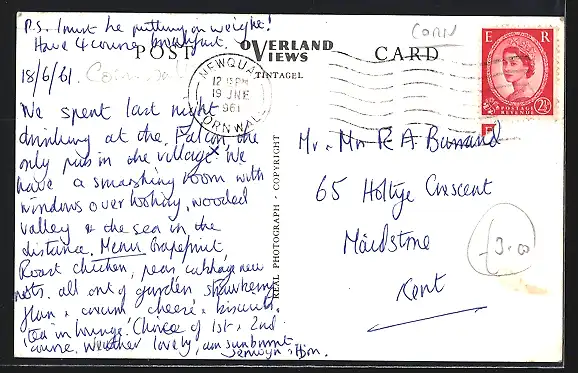 P.S. I must be putting on weight!
Have 4 course breakfast.
POST
OVERLAND VIEWS
CARD
CORN
TINTAGEL
18/6/61.
Cornwall
NEWQUAY
12 15 PM
19 JNE
1961
CORNWALL
E R
POSTAGE
REVENUE
2½
We spent last night
drinking at the Falcon, the
only pub in the village. We
have a smashing room with
windows overlooking, wooded
valley & the sea in the
distance. Menu Grapefruit,
Roast chicken, peas, cabbage, new
pots. all out of garden strawberry
flan & cream cheese & biscuits.
tea in lounge! Choice of 1st & 2nd
course. Weather lovely, am sunburnt
REAL PHOTOGRAPH - COPYRIGHT
Mr. Mrs
65 Holtye Crescent
Maidstone
Kent
3.00